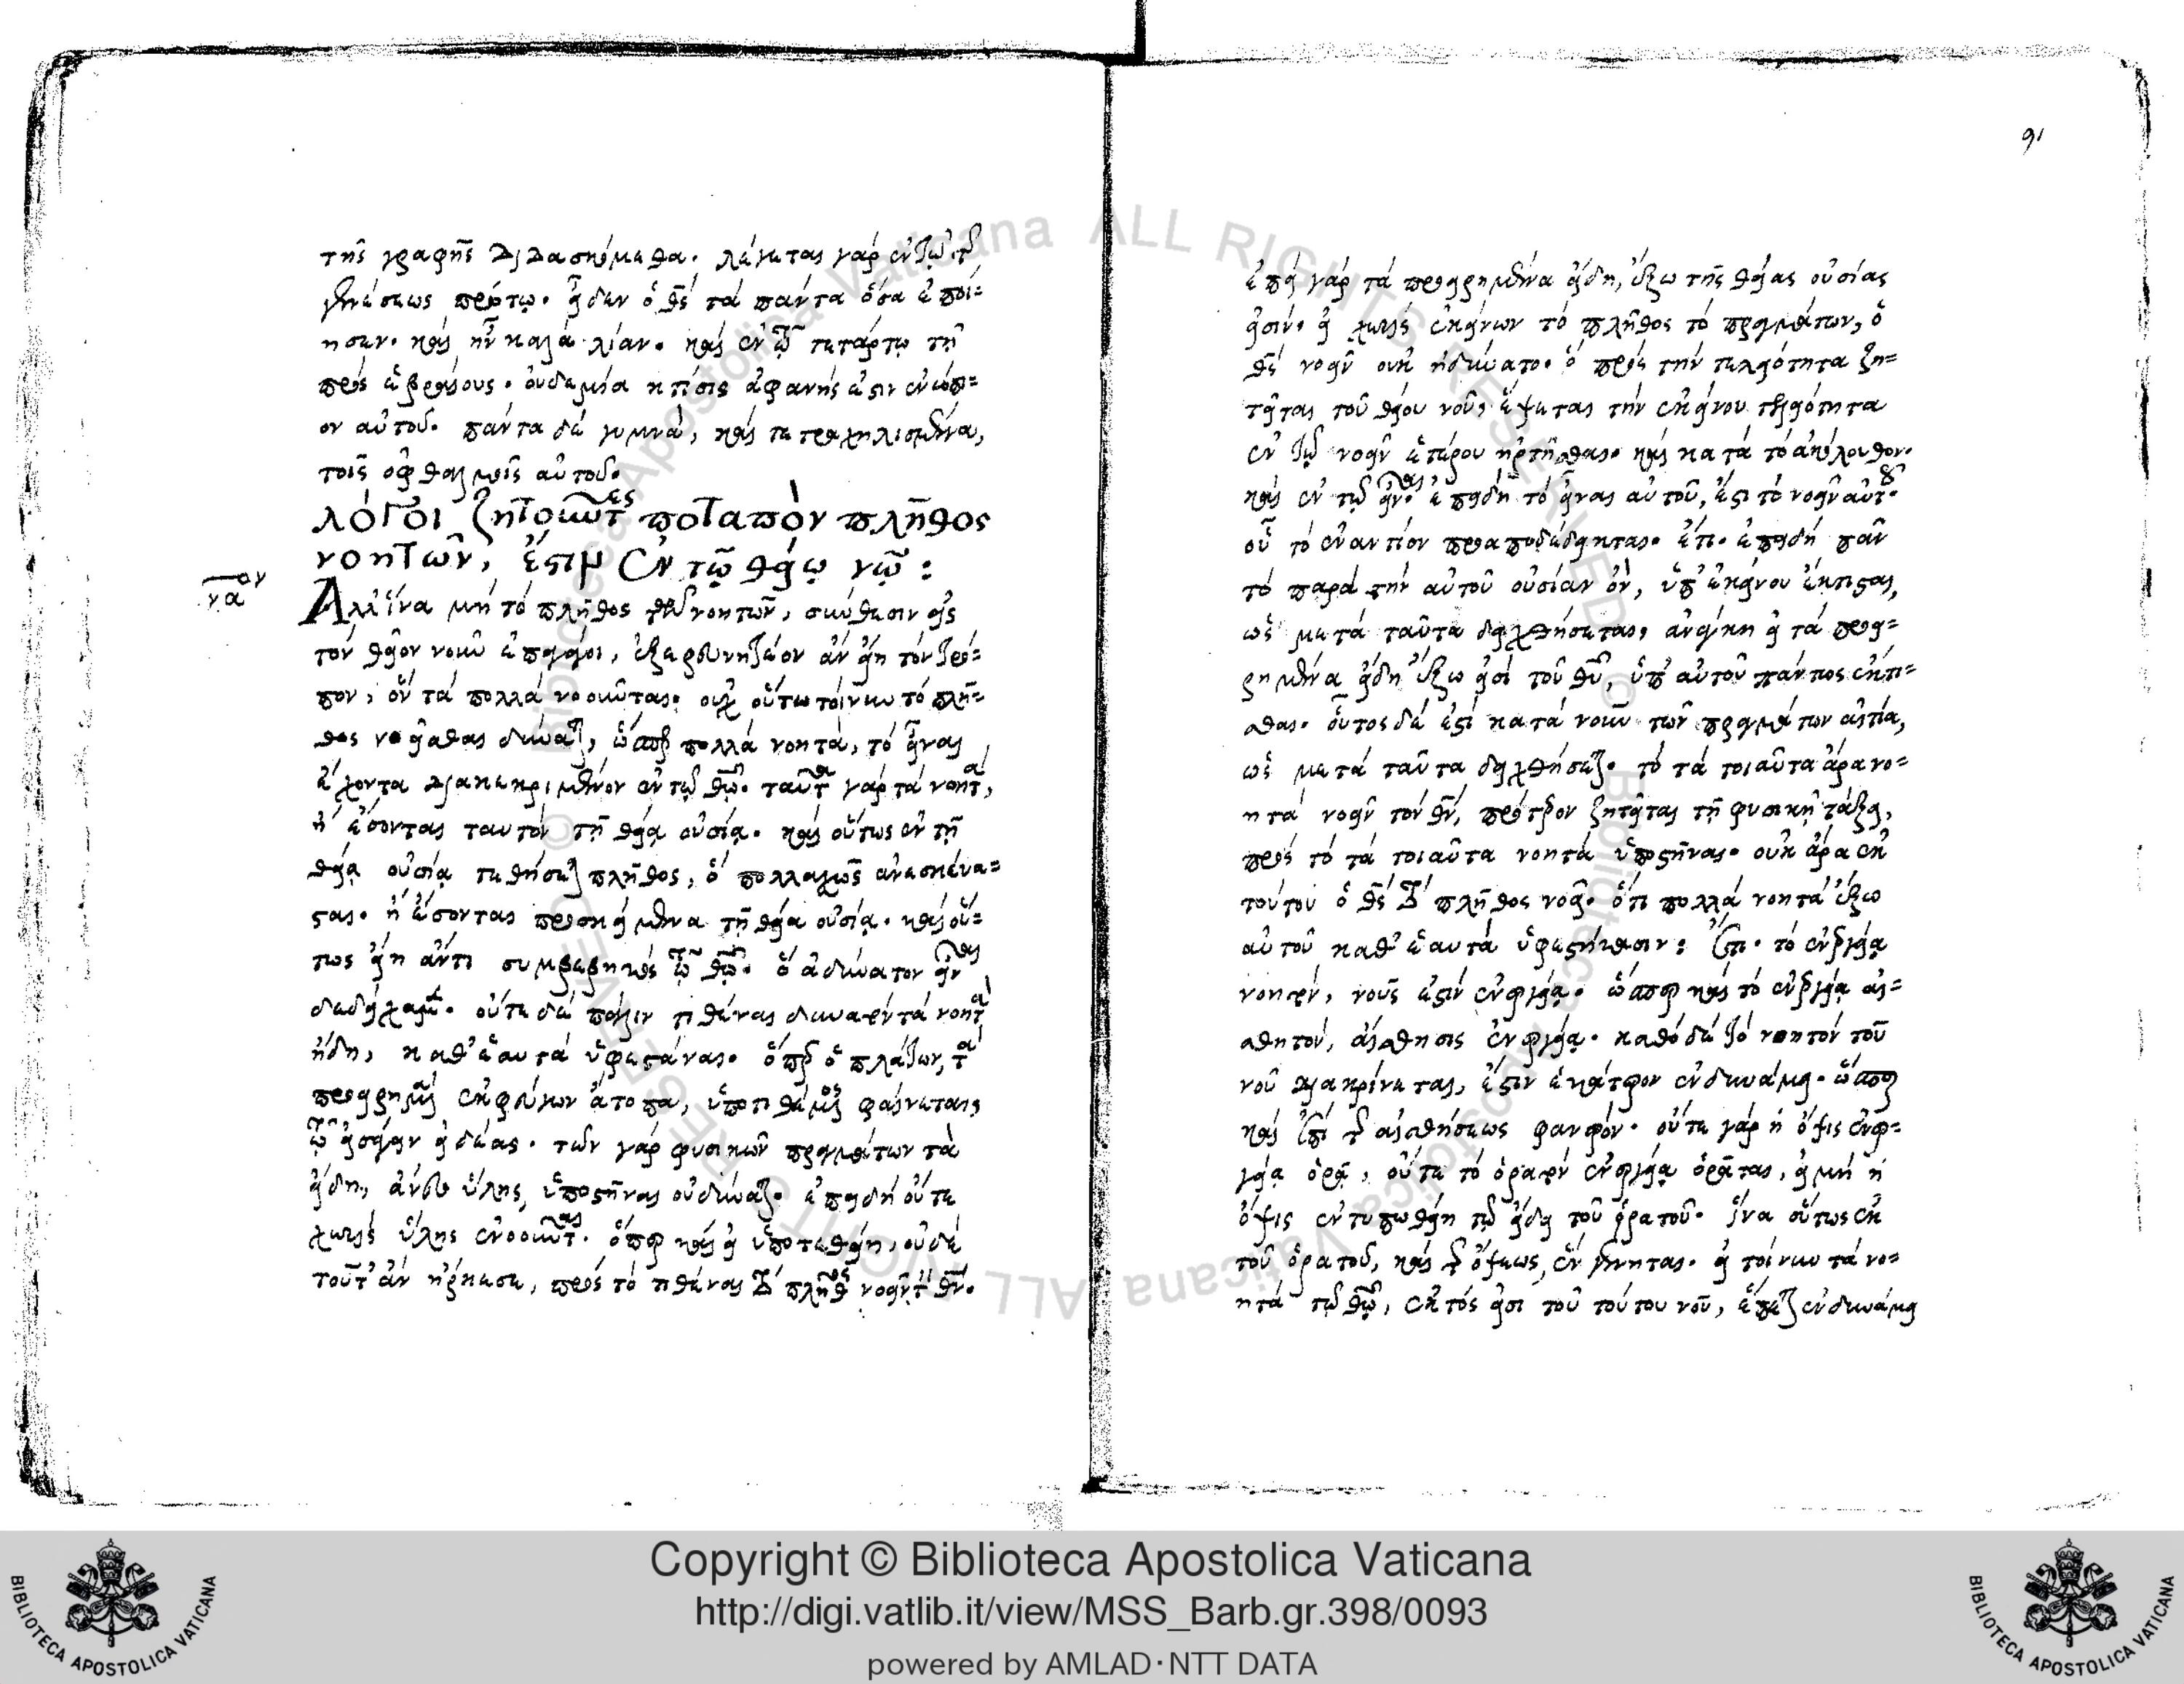 τῆς γραφῆς διδασκόμεθα. λέγεται γὰρ ἐν τῷ τῆς
γενέσεως πρώτῳ. εἶδεν ὁ θς̄ τὰ πάντα ὅσα ἐποί=
ησεν. καὶ ἦν καλὰ λίαν. καὶ ἐν τῷ τετάρτῳ τῇ
πρὸς ἑβραίους. οὐδεμία κτίσις ἀφανής ἐστιν ἐνώπι=
ον αὐτοῦ. πάντα δὲ γυμνὰ, καὶ τετραχηλισμένα,
τοῖς ὀφθαλμοῖς αὐτοῦ.
λόγοι ζητοῦντες ποταπὸν πλῆθος
νοητῶν, ἔστιν ἐν τῷ θείῳ νῷ:
να ον
Ἀλλ' ἵνα μὴ τὸ πλῆθος τῶν νοητῶν, σύνθεσιν εἰς
τὸν θεῖον νοῦν ἐπάγοι, ἐξερευνητέον ἂν εἴη τὸν τρό=
πον, ὃν τὰ πολλὰ νοοῦνται. οὐχ οὕτω τοίνυν τὸ πλῆ=
θος νοεῖσθαι δύναται, ὥσπερ πολλὰ νοητὰ, τὸ εἶναι
ἔχοντα διακεκριμένον ἐν τῷ θῷ. ταῦτα γὰρ τὰ νοητὰ,
ἢ ἔσονται ταυτὸν τῇ θείᾳ οὐσίᾳ. καὶ οὕτως ἐν τῇ
θείᾳ οὐσίᾳ τεθήσεται πλῆθος, ὃ πολλαχῶς ἀνεσκεύα=
σται. ἢ ἔσονται προσκείμενα τῇ θείᾳ οὐσίᾳ. καὶ οὕ=
τως εἴη ἄν τι συμβεβηκὸς τῷ θῷ. ὃ ἀδύνατον εἶναι
δεδείχαμεν. οὔτε δὲ πάλιν τιθέναι δυνατὸν τὰ νοητὰ
εἴδη, καθ' ἑαυτὰ ὑφεστάναι. ὅπερ ὁ πλάτων, τὰ
προειρημένα ἐκφεύγων ἄτοπα, ὑποτιθέμενος φαίνεται
τῷ εἰσάγειν ἰδέας. τῶν γὰρ φυσικῶν πραγμάτων τὰ
εἴδη, ἄνευ ὕλης, ὑποστῆναι οὐ δύναται. ἐπειδὴ οὔτε
χωρὶς ὕλης ἐννοοῦνται. ὅπερ καὶ εἰ ὑποτεθείη, οὐδὲ
τοῦτ' ἂν ἤρκεσε, πρὸς τὸ τιθέναι πλῆθος νοεῖν τὸν θν̄.
91
ἐπεὶ γὰρ τὰ προειρημένα εἴδη, ἔξω τῆς θείας οὐσίας
εἰσίν. εἰ χωρὶς ἐκείνων τὸ πλῆθος τῶν πραγμάτων, ὁ
θς̄ νοεῖν οὐκ ἠδύνατο. ὃ πρὸς τὴν τελειότητα ζη=
τεῖται τοῦ θείου νοῦ, ἕψεται τὴν ἐκείνου τελειότητα
ἐν τῷ νοεῖν ἑτέρου ἠρτῆσθαι. καὶ κατὰ τὸ ἀκόλουθον.
καὶ ἐν τῷ εἶναι. ἐπειδὴ τὸ εἶναι αὐτοῦ, ἔστι τὸ νοεῖν αὐτοῦ.
οὗ τὸ ἐναντίον προαποδέδεικται. ἔτι. ἐπειδὴ πᾶν
τὸ παρὰ τὴν αὐτοῦ οὐσίαν ὂν, ὑπ' ἐκείνου ἔκτισται,
ὡς μετὰ ταῦτα δειχθήσεται, ἀνάγκη εἰ τὰ προει=
ρημένα εἴδη ἔξω εἰσὶ τοῦ θῦ, ὑπ' αὐτοῦ πάντως ἐκτί=
σθαι. οὗτος δέ ἐστι κατὰ νοῦν τῶν πραγμάτων αἰτία,
ὡς μετὰ ταῦτα δειχθήσεται. τὸ τὰ τοιαῦτα ἄρα νο=
ητὰ νοεῖν τὸν θν̄, πρότερον ζητεῖται τῇ φυσικῇ τάξει,
πρὸς τὸ τὰ τοιαῦτα νοητὰ ὑποστῆναι. οὐκ ἄρα ἐκ
τούτου ὁ θς̄ πλῆθος νοεῖ. ὅτι πολλὰ νοητὰ ἔξω
αὐτοῦ καθ' ἑαυτὰ ὑφεστήκασιν: ἔτι. τὸ ἐνεργείᾳ
νοητὸν, νοῦς ἐστὶν ἐνεργείᾳ. ὥσπερ καὶ τὸ ἐνεργείᾳ αἰ=
σθητὸν, αἴσθησις ἐνεργείᾳ. καθὸ δὲ τὸ νοητὸν τοῦ
νοῦ διακρίνεται, ἔστιν ἑκάτερον ἐν δυνάμει. ὥσπερ
καὶ ἐπὶ τῆς αἰσθήσεως φανερόν. οὔτε γὰρ ἡ ὄψις ἐνερ=
γείᾳ ὁρᾷ, οὔτε τὸ ὁρατὸν ἐνεργείᾳ ὁρᾶται, εἰ μὴ ἡ
ὄψις ἐντυπωθείη τῷ εἴδει τοῦ ὁρατοῦ. ἵνα οὕτως ἐκ
τοῦ ὁρατοῦ, καὶ τῆς ὄψεως, ἓν γένηται. εἰ τοίνυν τὰ νο=
ητὰ τῷ θῷ, ἐκτός εἰσι τοῦ τούτου νοῦ, ἕπεται ἐν δυνάμει
Copyright © Biblioteca Apostolica Vaticana
http://digi.vatlib.it/view/MSS_Barb.gr.398/0093
powered by AMLAD·NTT DATA
BIBLIOTECA APOSTOLICA VATICANA
BIBLIOTECA APOSTOLICA VATICANA